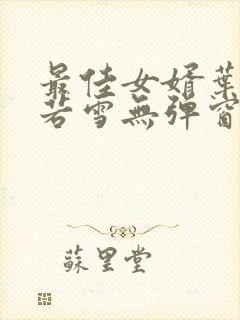 最佳女婿葉
若雪無彈窗
蘇里堂